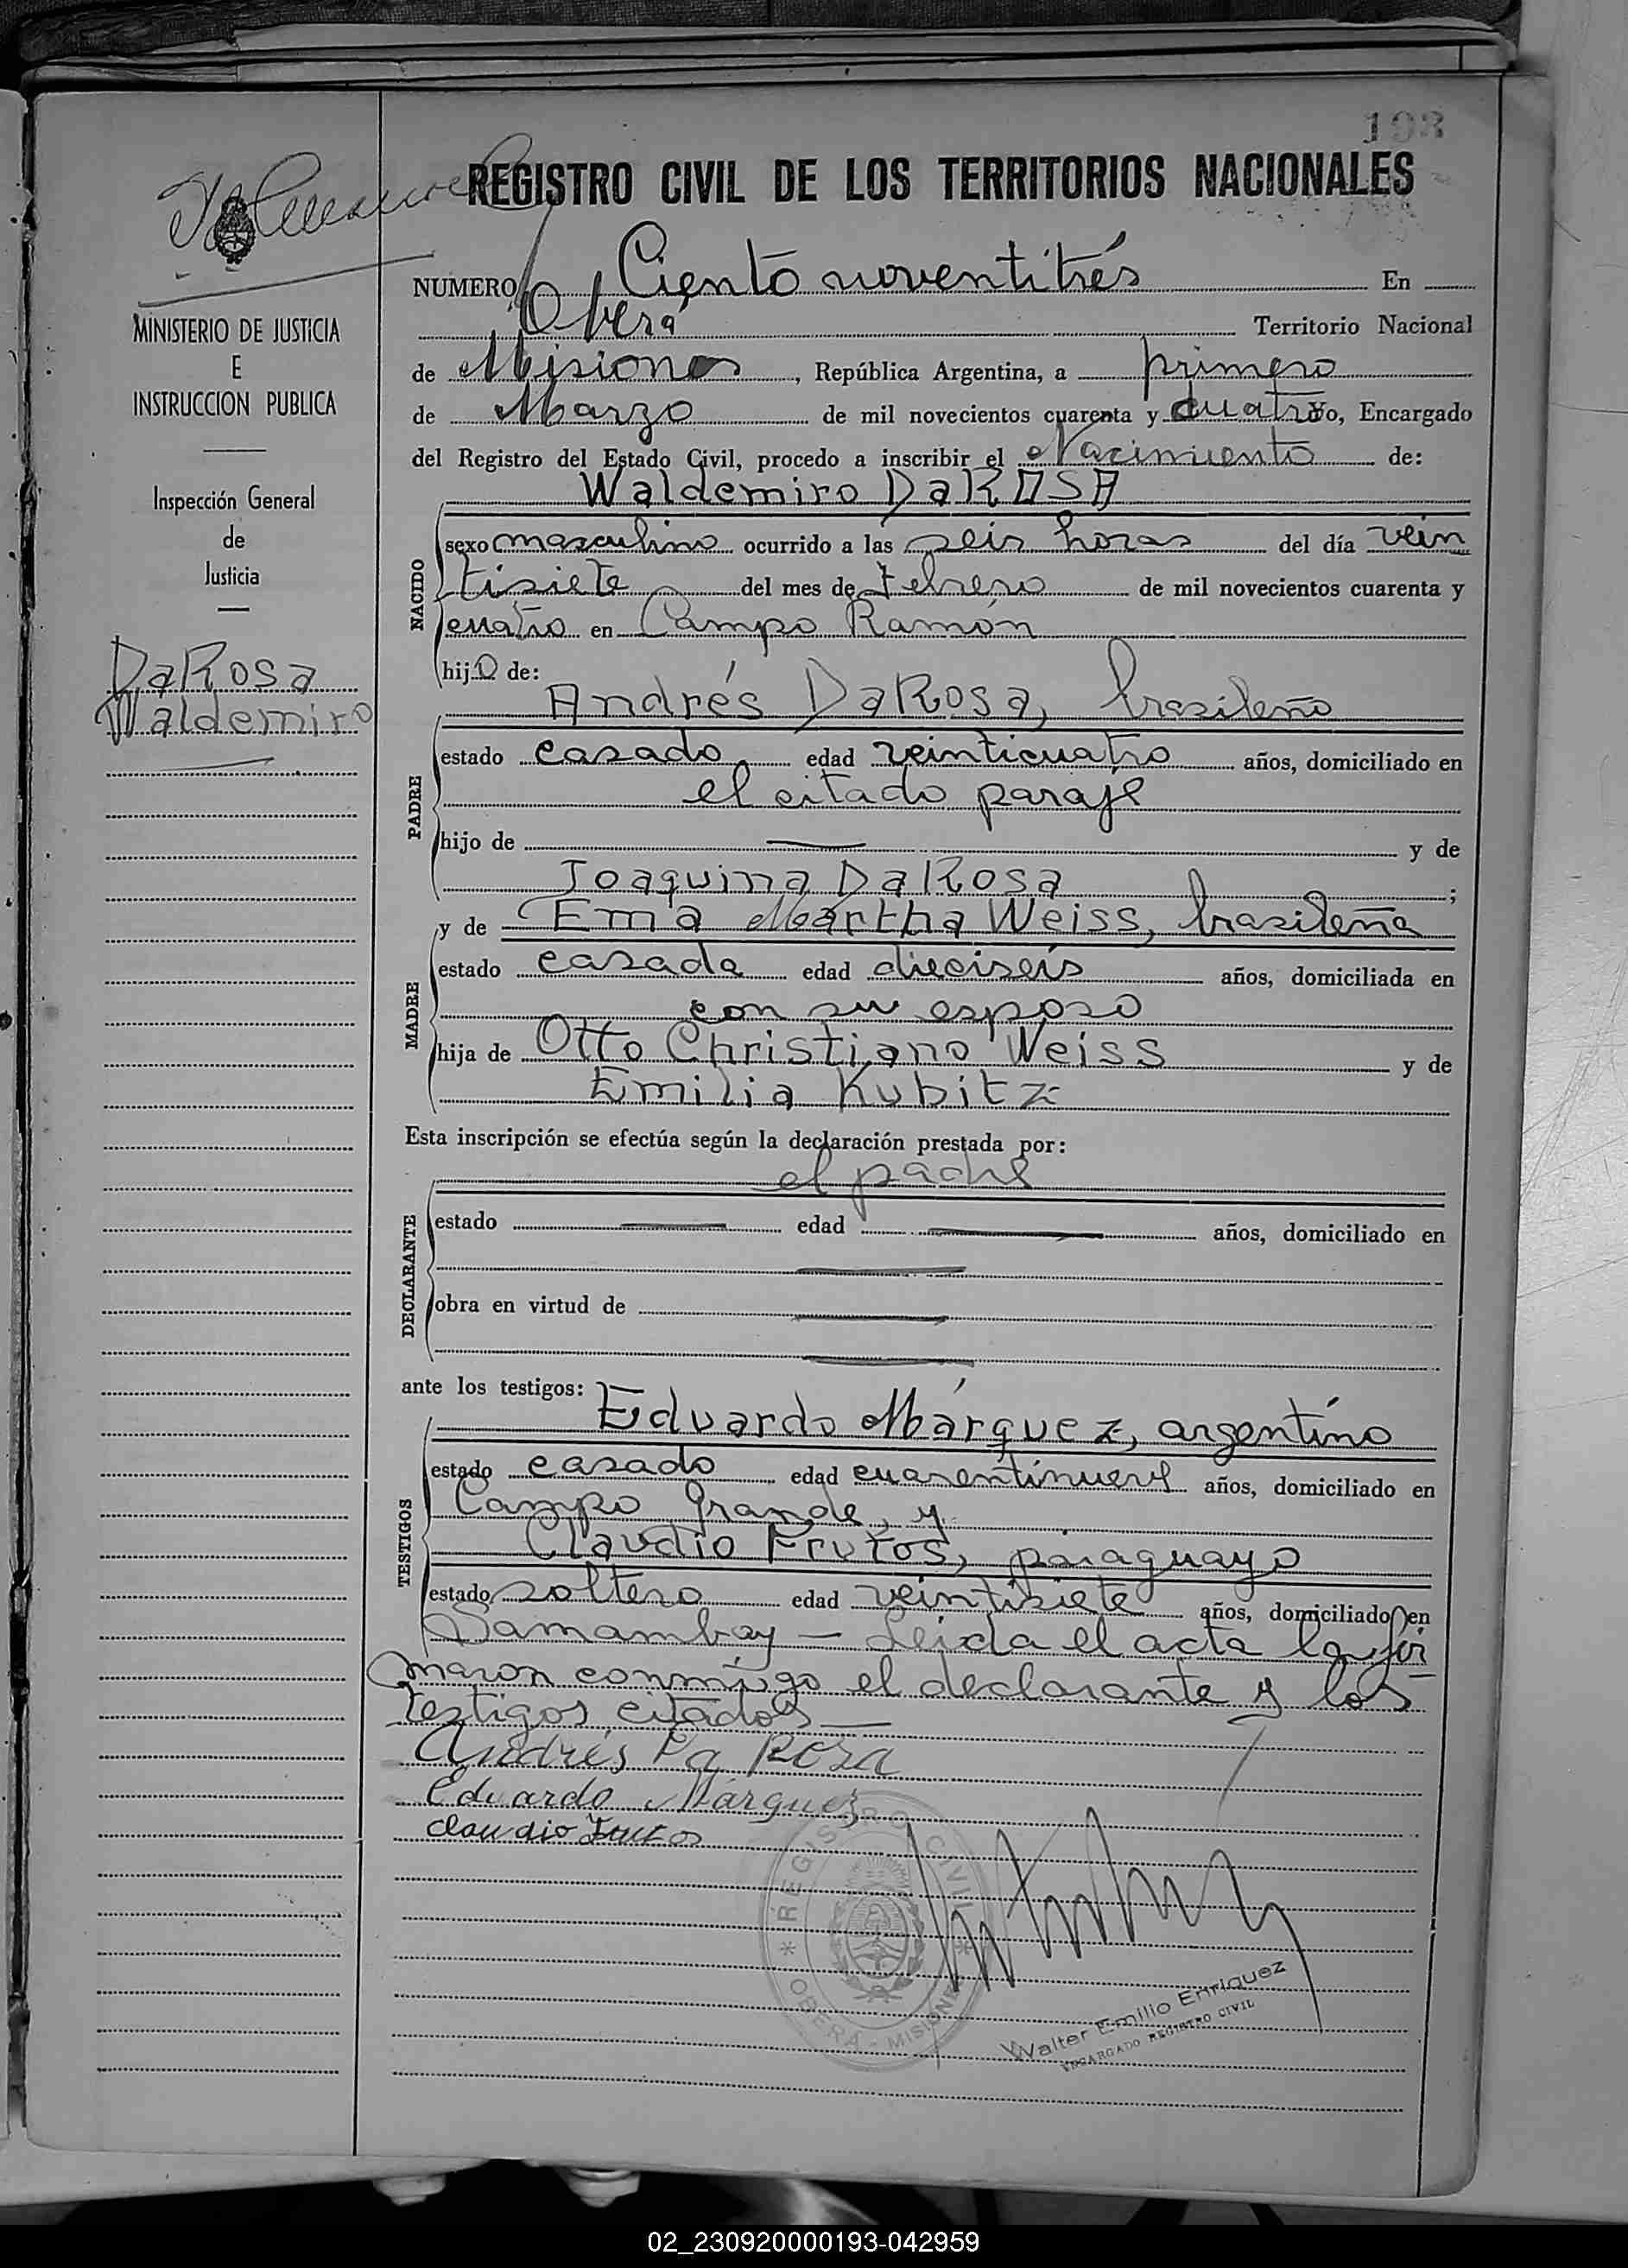 193
REGISTRO CIVIL DE LOS TERRITORIOS NACIONALES
MINISTERIO DE JUSTICIA
E
INSTRUCCION PUBLICA
Inspección General
de
Justicia
DaRosa
Waldemiro
NUMERO Ciento noventitrés En
Oberá Territorio Nacional
de Misiones, República Argentina, a primero
de Marzo de mil novecientos cuarenta y cuatro Yo, Encargado
del Registro del Estado Civil, procedo a inscribir el Nacimiento de:
Waldemiro DaROSA
NACIDO
sexo masculino ocurrido a las seis horas del día vein
tisiete del mes de Febrero de mil novecientos cuarenta y
cuatro en Campo Ramón
hijo de:
Andrés DaRosa, brasileño
PADRE
estado casado edad veinticuatro años, domiciliado en
el citado paraje
hijo de — y de
Joaquina DaRosa ;
y de Ema Martha Weiss, brasileña
MADRE
estado casada edad dieciseis años, domiciliada en
con su esposo
hija de Otto Christiano Weiss y de
Emilia Kubitz
Esta inscripción se efectúa según la declaración prestada por:
el padre
DECLARANTE
estado — edad — años, domiciliado en
—
obra en virtud de —
—
ante los testigos:
Eduardo Márquez, argentino
TESTIGOS
estado casado edad cuarentinueve años, domiciliado en
Campo Grande, y
Claudio Frutos, paraguayo
estado soltero edad veintisiete años, domiciliado en
Samambay — Leída el acta la fir
maron conmigo el declarante y los
testigos citados —
Andrés Da Rosa
Eduardo Márquez
Claudio Frutos
REGISTRO CIVIL
OBERÁ - MISIONES
Walter Emilio Enriquez
ENCARGADO REGISTRO CIVIL
02_230920000193-042959